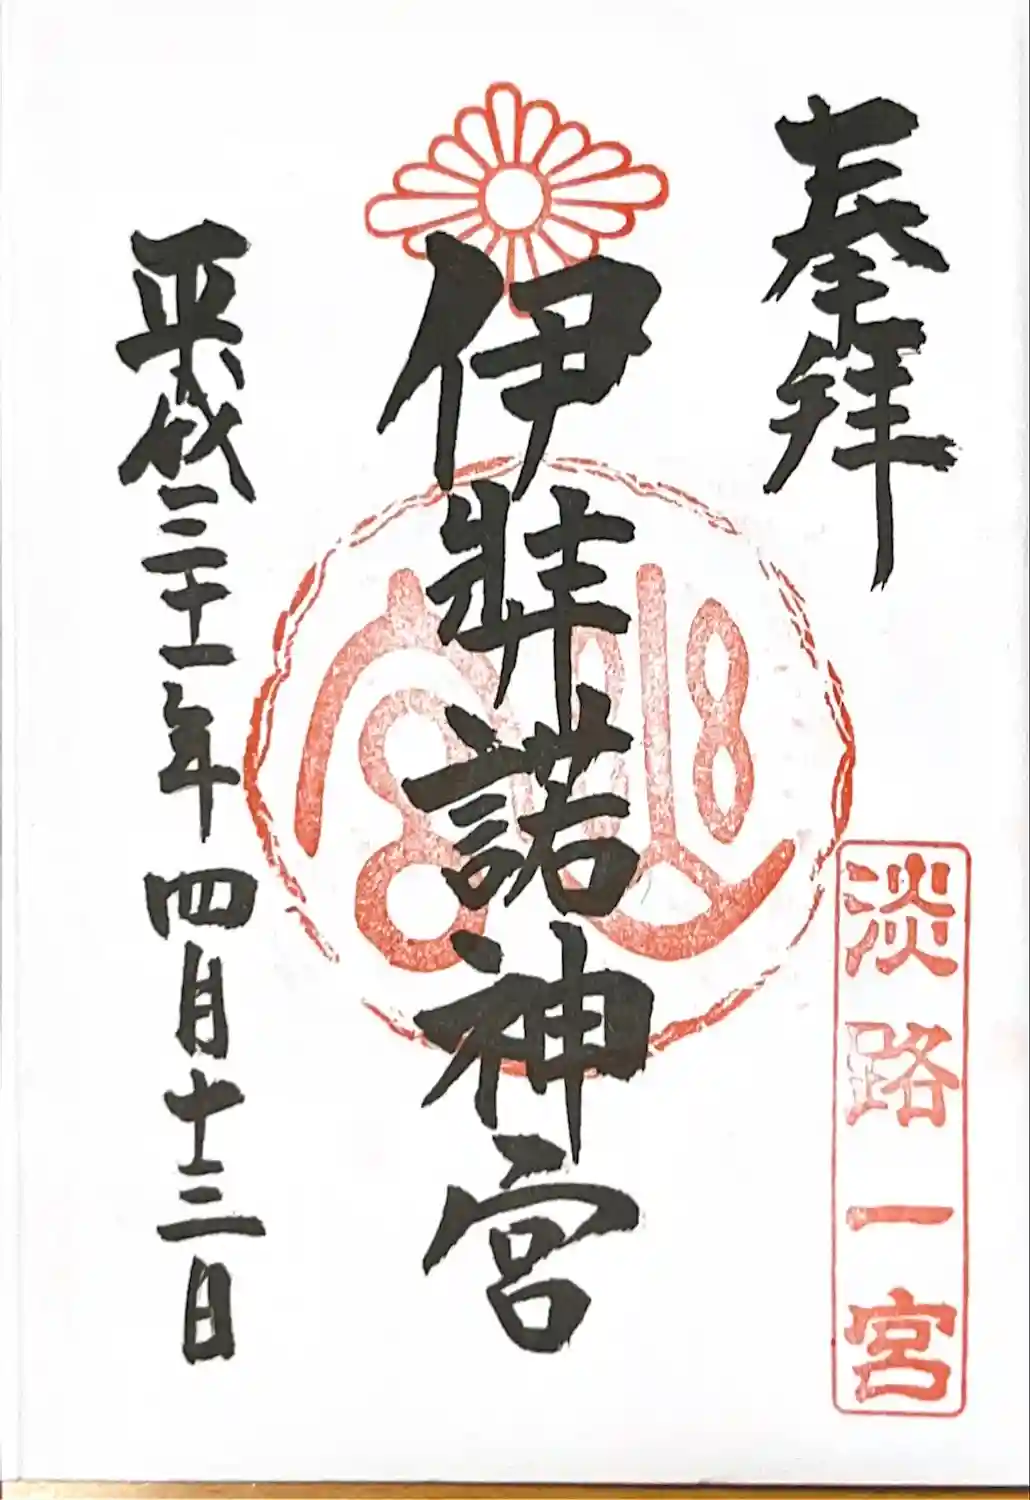 奉拝
淡路一宮
伊弉諾神宮
平成三十一年四月十三日